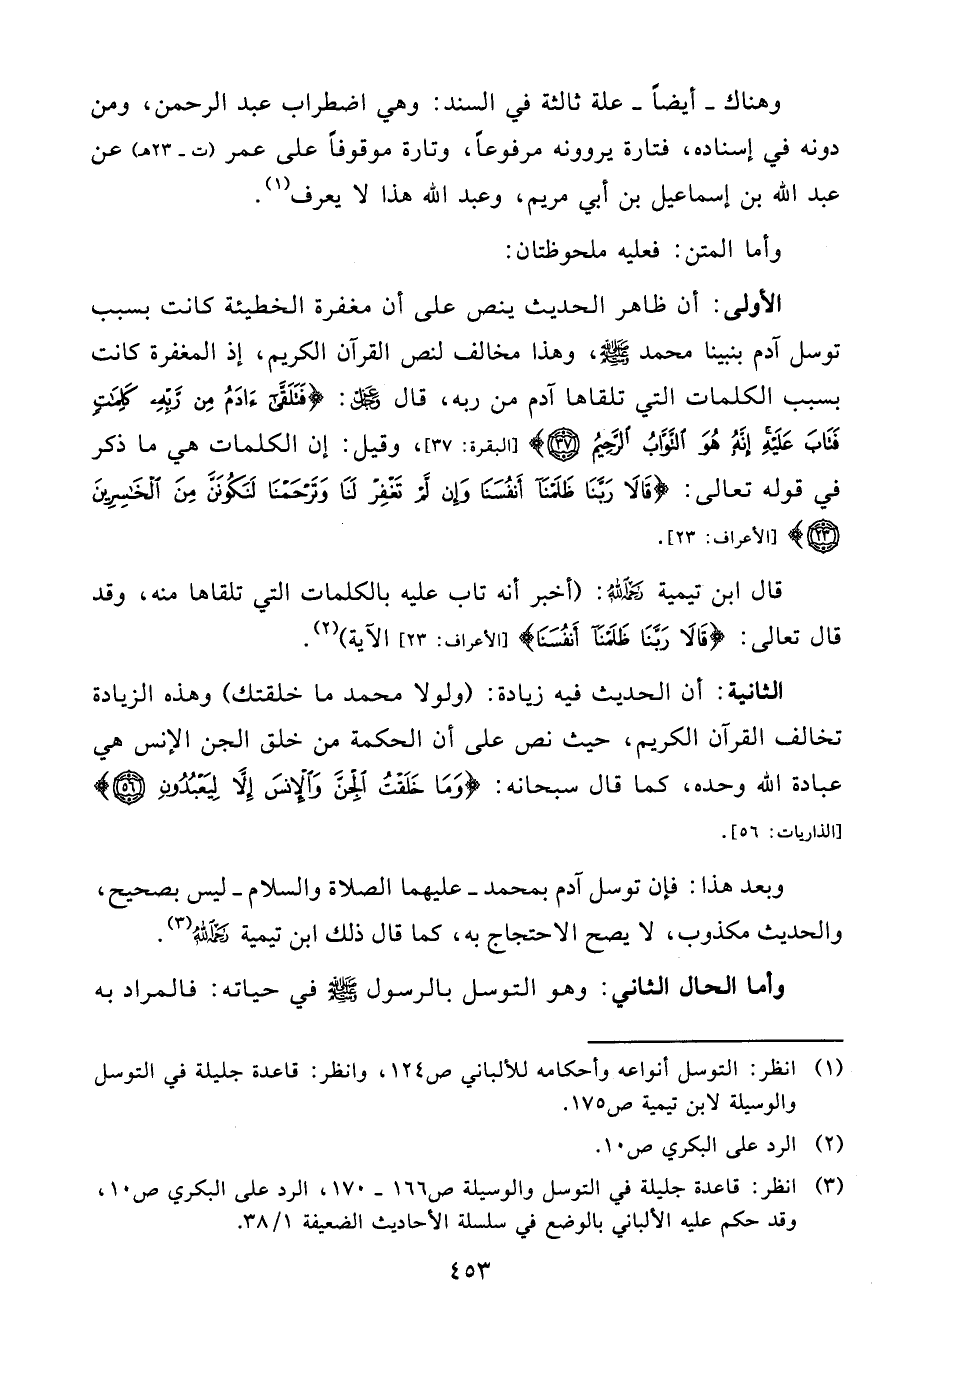 وهناك ـ أيضاً ـ علة ثالثة في السند: وهي اضطراب عبد الرحمن، ومن
دونه في إسناده، فتارة يروونه مرفوعاً، وتارة موقوفاً على عمر (ت ـ ٢٣هـ) عن
عبد الله بن إسماعيل بن أبي مريم، وعبد الله هذا لا يعرف(١).
وأما المتن: فعليه ملحوظتان:
الأولى: أن ظاهر الحديث ينص على أن مغفرة الخطيئة كانت بسبب
توسل آدم بنبينا محمد ﷺ، وهذا مخالف لنص القرآن الكريم، إذ المغفرة كانت
بسبب الكلمات التي تلقاها آدم من ربه، قال ﷻ: ﴿فَتَلَقَّىٰٓ ءَادَمُ مِن رَّبِّهِۦ كَلِمَٰتٍ
فَتَابَ عَلَيْهِۚ إِنَّهُۥ هُوَ ٱلتَّوَّابُ ٱلرَّحِيمُ ٣٧﴾ [البقرة: ٣٧]، وقيل: إن الكلمات هي ما ذكر
في قوله تعالى: ﴿قَالَا رَبَّنَا ظَلَمْنَآ أَنفُسَنَا وَإِن لَّمْ تَغْفِرْ لَنَا وَتَرْحَمْنَا لَنَكُونَنَّ مِنَ ٱلْخَٰسِرِينَ
٢٣﴾ [الأعراف: ٢٣].
قال ابن تيمية رَحِمَهُ ٱللَّهُ: (أخبر أنه تاب عليه بالكلمات التي تلقاها منه، وقد
قال تعالى: ﴿قَالَا رَبَّنَا ظَلَمْنَآ أَنفُسَنَا﴾ [الأعراف: ٢٣] الآية)(٢).
الثانية: أن الحديث فيه زيادة: (ولولا محمد ما خلقتك) وهذه الزيادة
تخالف القرآن الكريم، حيث نص على أن الحكمة من خلق الجن الإنس هي
عبادة الله وحده، كما قال سبحانه: ﴿وَمَا خَلَقْتُ ٱلْجِنَّ وَٱلْإِنسَ إِلَّا لِيَعْبُدُونِ ٥٦﴾
[الذاريات: ٥٦].
وبعد هذا: فإن توسل آدم بمحمد ـ عليهما الصلاة والسلام ـ ليس بصحيح،
والحديث مكذوب، لا يصح الاحتجاج به، كما قال ذلك ابن تيمية رَحِمَهُ ٱللَّهُ(٣).
وأما الحال الثاني: وهو التوسل بالرسول ﷺ في حياته: فالمراد به
(١) انظر: التوسل أنواعه وأحكامه للألباني ص١٢٤، وانظر: قاعدة جليلة في التوسل
والوسيلة لابن تيمية ص١٧٥.
(٢) الرد على البكري ص١٠.
(٣) انظر: قاعدة جليلة في التوسل والوسيلة ص١٦٦ ـ ١٧٠، الرد على البكري ص١٠،
وقد حكم عليه الألباني بالوضع في سلسلة الأحاديث الضعيفة ٣٨/١.
٤٥٣